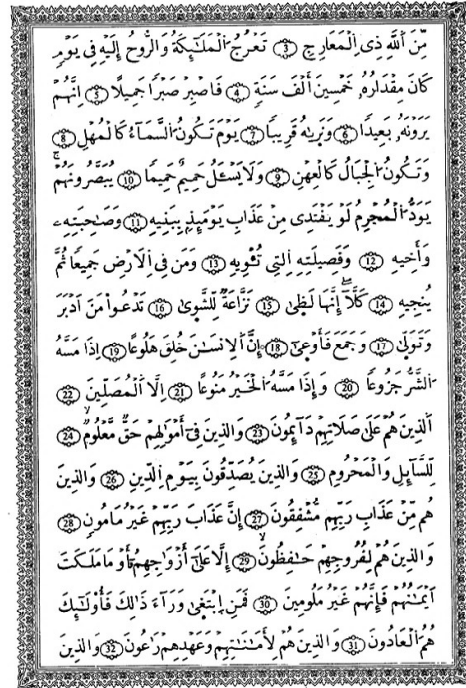 مِّنَ اَ۬للَّهِ ذِے اِ۬لْمَعَارِجِ 3 تَعْرُجُ اُ۬لْمَلَٰٓئِكَةُ وَالرُّوحُ إِلَيْهِ فِے يَوْمٖ
كَانَ مِقْدَارُهُۥ خَمْسِينَ أَلْفَ سَنَةٖ 4 فَاصْبِرْ صَبْراٗ جَمِيلاًۖ 5 اِنَّهُمْ
يَرَوْنَهُۥ بَعِيداٗ 6 وَنَر۪يٰهُ قَرِيباٗۖ 7 يَوْمَ تَكُونُ اُ۬لسَّمَآءُ كَالْمُهْلِ 8
وَتَكُونُ اُ۬لْجِبَالُ كَالْعِهْنِ 9 وَلَا يَسْـَٔلُ حَمِيمٌ حَمِيماٗ 10 يُبَصَّرُونَهُمْۖ
يَوَدُّ اُ۬لْمُجْرِمُ لَوْ يَفْتَدِے مِنْ عَذَابِ يَوْمَئِذِۢ بِبَنِيهِ 11 وَصَٰحِبَتِهِۦ
وَأَخِيهِ 12 وَفَصِيلَتِهِ اِ۬لتِے تُـْٔوِيهِ 13 وَمَن فِے اِ۬لَارْضِ جَمِيعاٗ ثُمَّ
يُنجِيهِ 14 كَلَّآۖ إِنَّهَا لَظ۪ىٰ 15 نَزَّاعَةٞ لِّلشَّو۪ىٰ 16 تَدْعُواْ مَنَ اَدْبَرَ
وَتَوَلّ۪ىٰ 17 وَجَمَعَ فَأَوْع۪ىٰٓۖ 18 إِنَّ اَ۬لِانسَٰنَ خُلِقَ هَلُوعاً 19 اِذَا مَسَّهُ
اُ۬لشَّرُّ جَزُوعاٗ 20 وَإِذَا مَسَّهُ اُ۬لْخَيْرُ مَنُوعاً 21 اِلَّا اَ۬لْمُصَلِّينَ 22
اَ۬لذِينَ هُمْ عَلَىٰ صَلَاتِهِمْ دَآئِمُونَ 23 وَالذِينَ فِےٓ أَمْوَٰلِهِمْ حَقّٞ مَّعْلُومٞ 24
لِّلسَّآئِلِ وَالْمَحْرُومِ 25 وَالذِينَ يُصَدِّقُونَ بِيَوْمِ اِ۬لدِّينِ 26 وَالذِينَ
هُم مِّنْ عَذَابِ رَبِّهِم مُّشْفِقُونَ 27 إِنَّ عَذَابَ رَبِّهِمْ غَيْرُ مَامُونٖ 28
وَالذِينَ هُمْ لِفُرُوجِهِمْ حَٰفِظُونَ 29 إِلَّا عَلَىٰٓ أَزْوَٰجِهِمُۥٓ أَوْ مَا مَلَكَتَ
اَيْمَٰنُهُمْ فَإِنَّهُمْ غَيْرُ مَلُومِينَ 30 فَمَنِ اِ۪بْتَغ۪ىٰ وَرَآءَ ذَٰلِكَ فَأُوْلَٰٓئِكَ
هُمُ اُ۬لْعَادُونَ 31 وَالذِينَ هُمْ لِأَمَٰنَٰتِهِمْ وَعَهْدِهِمْ رَٰعُونَ 32 وَالذِينَ